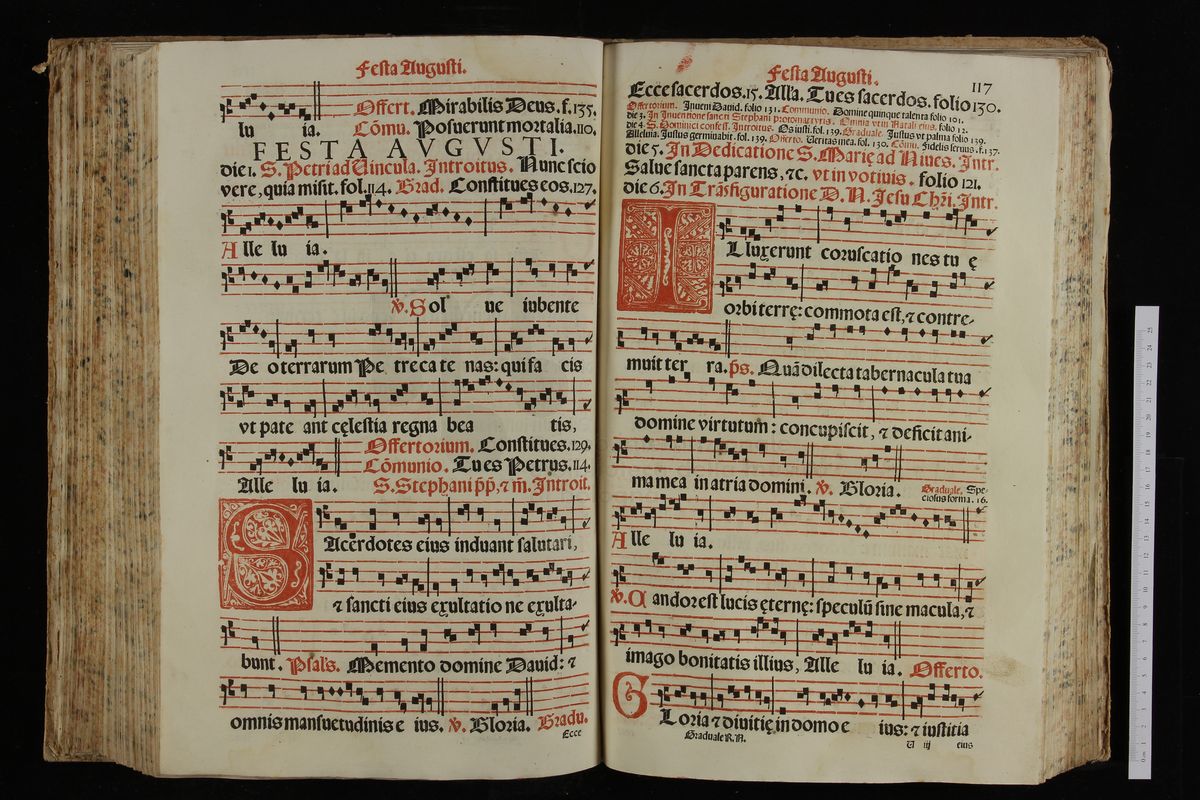 Festa Augusti.
Offert. Mirabilis Deus. f. 135.
lu ia. Cōmu. Posuerunt mortalia. 110.
FESTA AVGVSTI.
die 1. S. Petri ad Vincula. Introitus. Nunc scio
vere, quia misit. fol. 114. Grad. Constitues eos. 127.
Alle lu ia.
℣. Sol ue iubente
De o terrarum Pe tre ca te nas: qui fa cis
vt pate ant cęlestia regna bea tis,
Offertorium. Constitues. 129.
Cōmunio. Tu es Petrus. 114.
Alle lu ia. S. Stephani p̄p̄, ⁊ m̄. Introit.
SAcerdotes eius induant salutari,
⁊ sancti eius exultatio ne exulta-
bunt. Psal's. Memento domine Dauid: ⁊
omnis mansuetudinis e ius. ℣. Gloria. Gradu.
Ecce
Festa Augusti.
117
Ecce sacerdos. 15. All'a. Tu es sacerdos. folio 130.
Offertorium. Inueni Dauid. folio 131. Communio. Domine quinque talenta folio 101.
die 3. In Inuentione sancti Stephani protomartyris. Omnia vt in Natali eius. folio 12.
die 4. S. Dominici confess. Introitus. Os iusti. fol. 139. Graduale. Justus vt palma folio 139.
Alleluia. Justus germinabit. fol. 139. Offerto. Veritas mea. fol. 130. Cōmu. Fidelis seruus. f. 137.
die 5. In Dedicatione S. Marię ad Niues. Intr.
Salue sancta parens, ⁊c. vt in votiuis. folio 121.
die 6. In Trāsfiguratione D. N. Jesu Chr̄i. Intr.
ILluxerunt coruscatio nes tu ę
orbi terrę: commota est, ⁊ contre-
muit ter ra. p̄s. Quā dilecta tabernacula tua
domine virtutum: concupiscit, ⁊ deficit ani-
ma mea in atria domini. ℣. Gloria. Graduale. Spe-
ciosus forma. 16.
Alle lu ia.
℣. Candor est lucis ęternę: speculū sine macula, ⁊
imago bonitatis illius, Alle lu ia. Offerto.
GLoria ⁊ diuitię in domo e ius: ⁊ iustitia
Graduale R. N. V iij eius